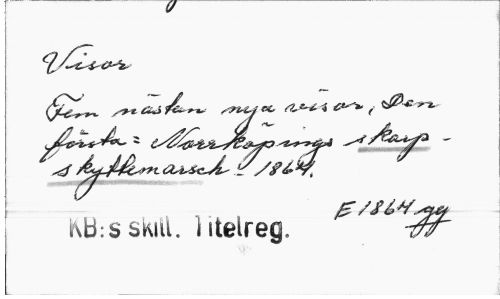 Visor
Fem nästan nya visor, Den
första = Norrköpings skarp-
skyttemarsch - 1864.
E 1864 gg
KB:s skill. Titelreg.